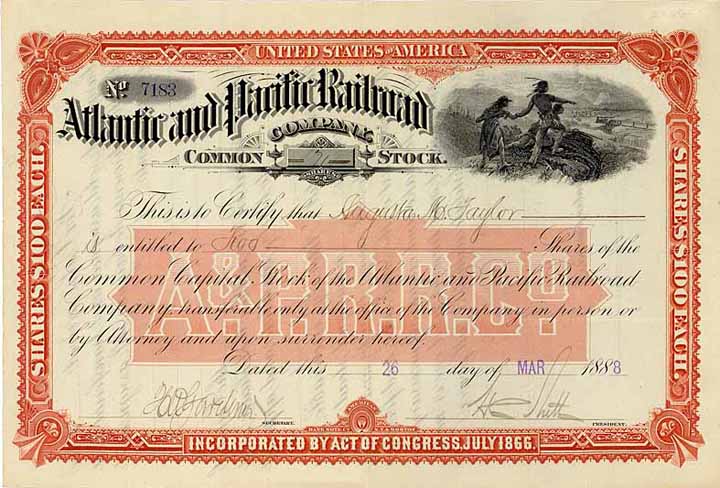 UNITED STATES OF AMERICA
No. 7183
Atlantic and Pacific Railroad
COMPANY.
COMMON 2 STOCK.
SHARES
This is to Certify that Augusta M. Taylor
is entitled to Two Shares of the
Common Capital Stock of the Atlantic and Pacific Railroad
Company, transferable only at the office of the Company in person or
by Attorney and upon surrender hereof.
A.&P.R.R.Co.
Dated this 26 day of MAR 1888
SECRETARY. PRESIDENT.
INCORPORATED BY ACT OF CONGRESS, JULY 1866.
SHARES $100 EACH.
SHARES $100 EACH.